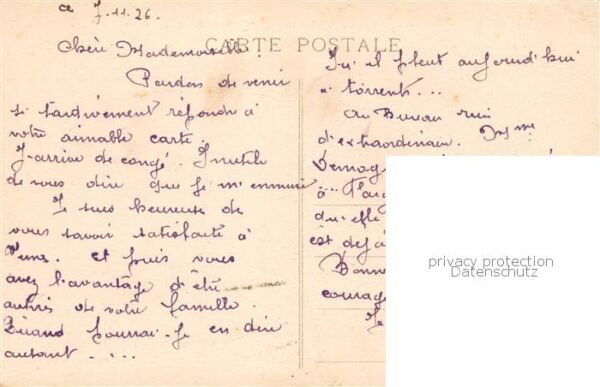 ce 7.11.26.
CARTE POSTALE
Chère Mademoiselle !
Pardon de venir
si tardivement répondre à
votre aimable carte.
J'arrive de congé. Inutile
de vous dire que je m'ennuie
Je suis heureuse de
vous savoir satisfaite à
Et puis vous
avez l'avantage d'être
auprès de votre famille.
Quand pourrai-je en dire
autant....
Ici il pleut aujourd'hui
à torrents...
Au Bureau rien
d'extraordinaire. Mme
à
qu'elle
est déjà
Bonne
courage
Je
privacy protection
Datenschutz